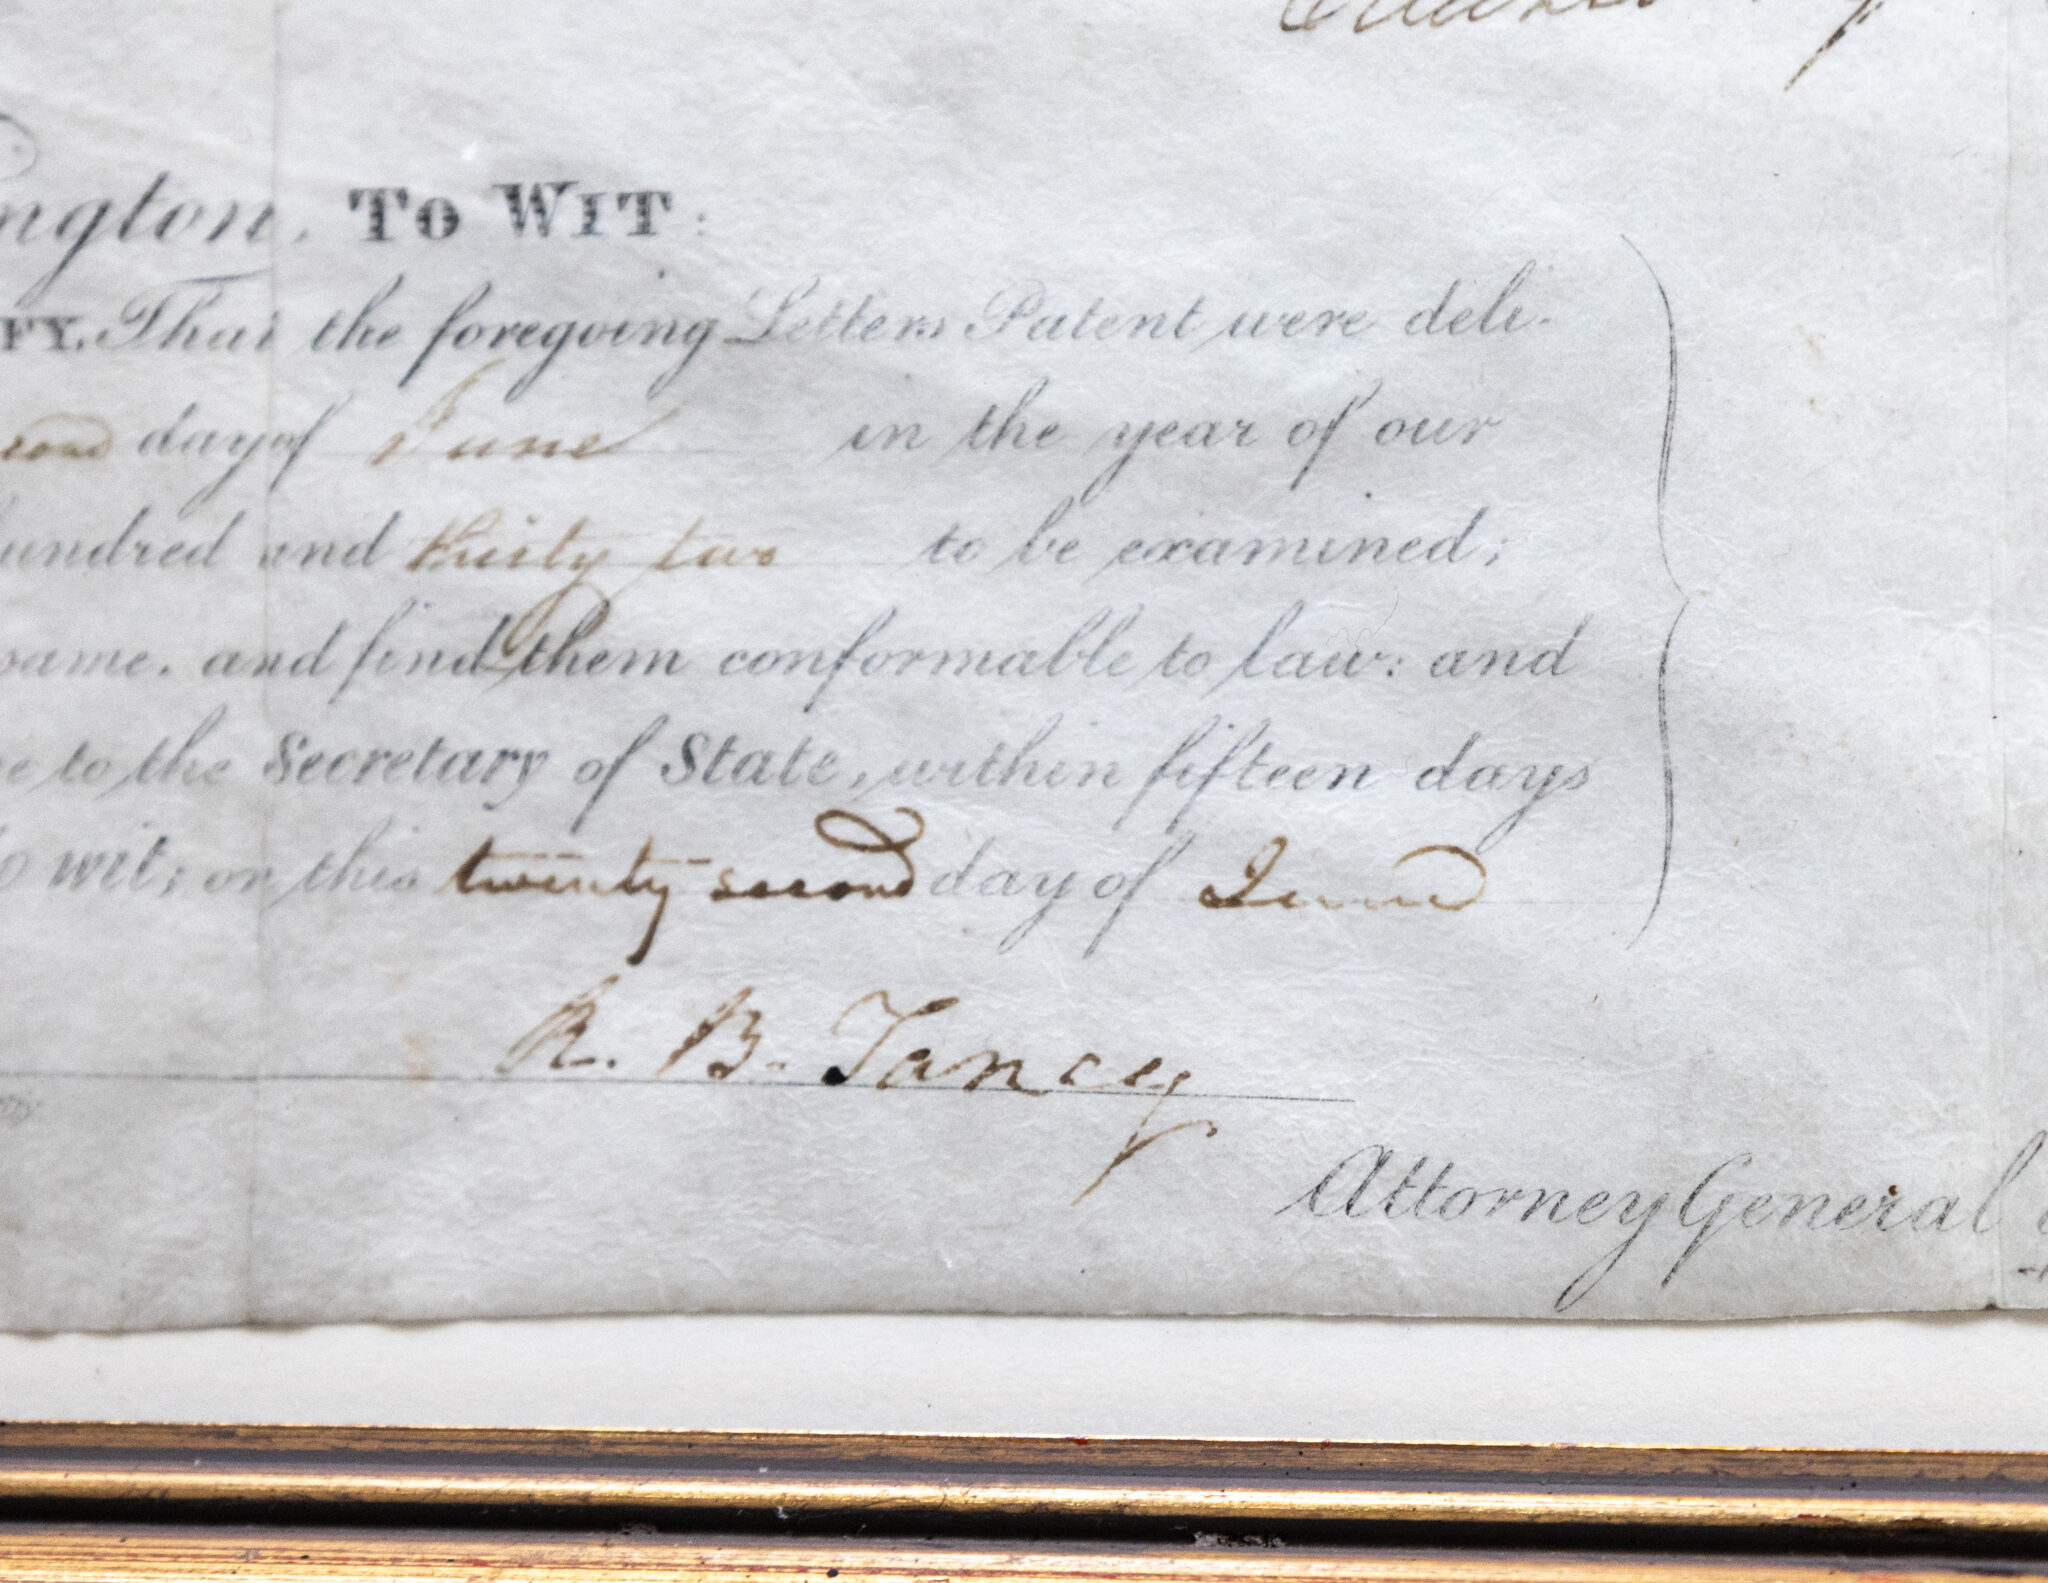 ngton, TO WIT:
FY. That the foregoing Letters Patent were deli-
cond day of June in the year of our
undred and thirty two to be examined;
same. and find them conformable to law: and
e to the Secretary of State, within fifteen days
o wit; on this twenty second day of June
R. B. Taney
Attorney General